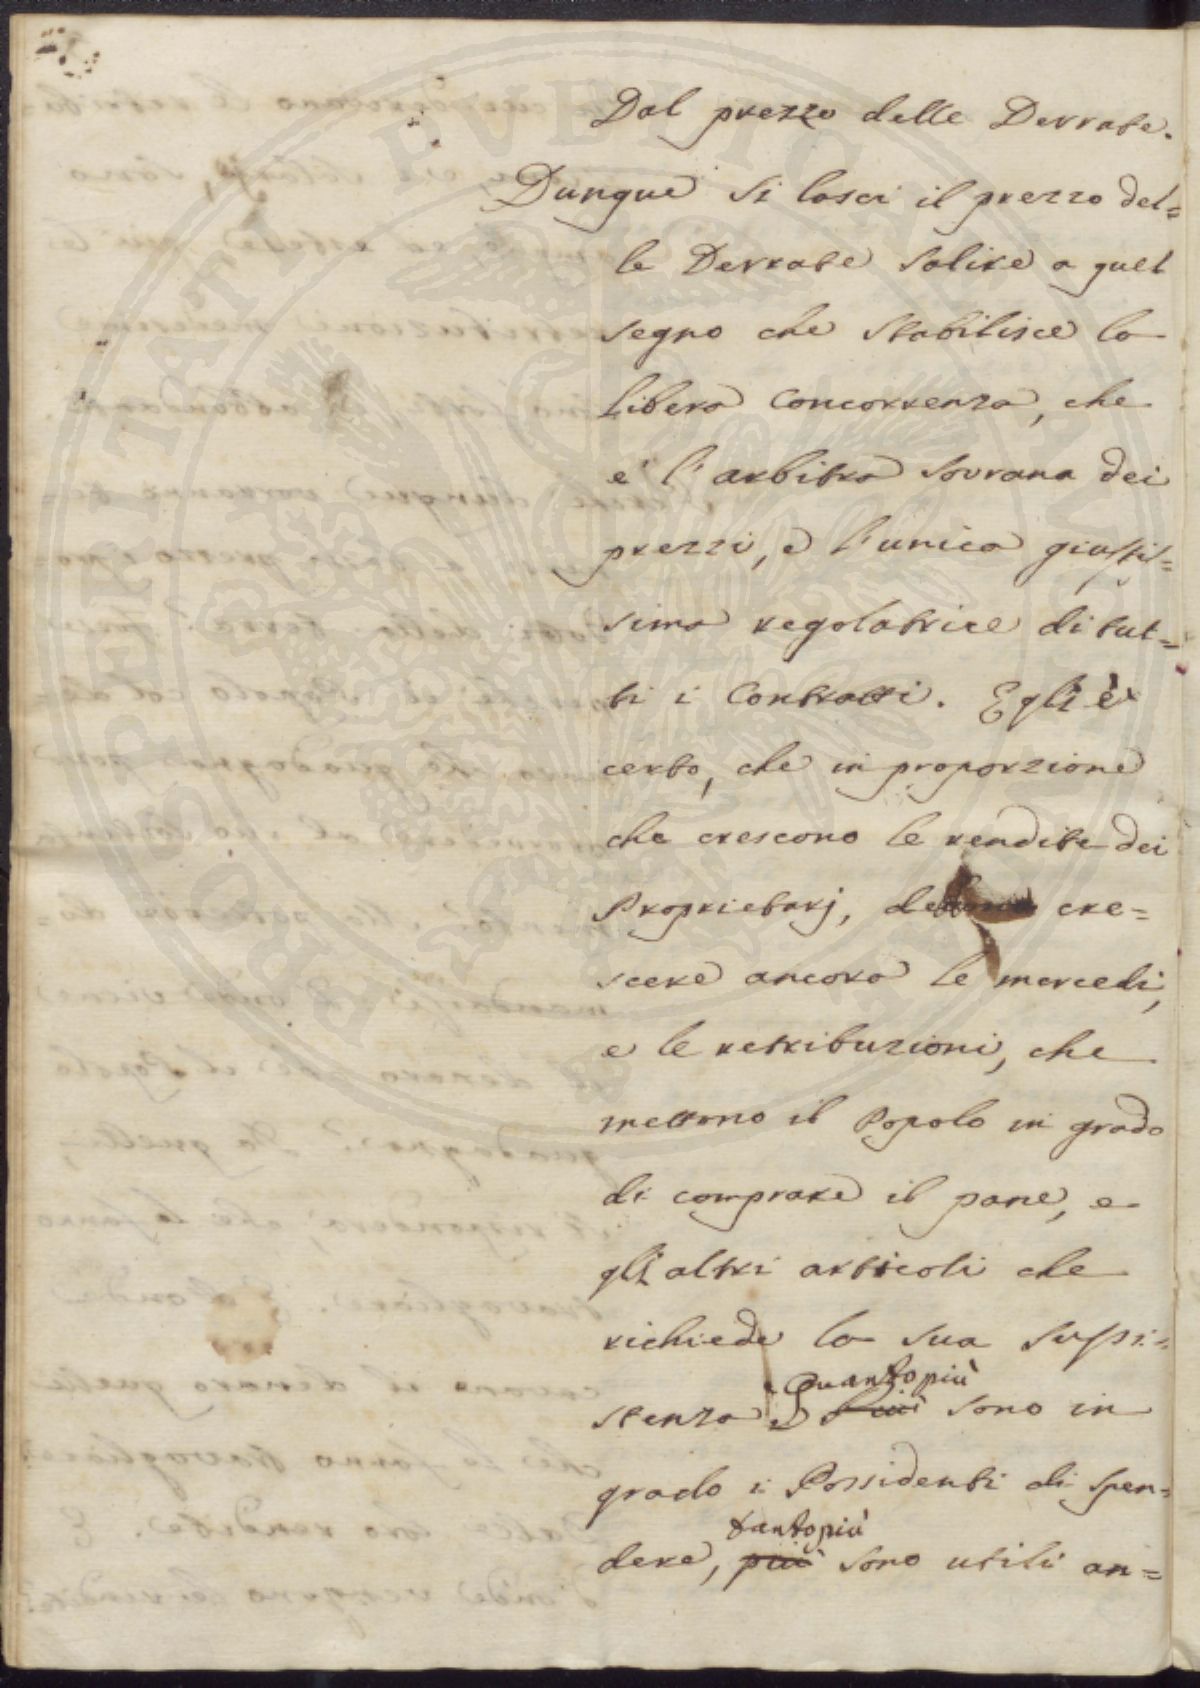 Dal prezzo delle Derrate.
Dunque si lasci il prezzo del=
le Derrate salire a quel
segno che stabilisce la
libera Concorrenza, che
e' l'arbitra sovrana dei
prezzi, e l'unica giustis=
sima regolatrice di tut=
ti i Contratti. Egli è
certo, che in proporzione
che crescono le rendite dei
Proprietarj, cre=
scere ancora le mercedi,
e le retribuzioni, che
mettono il Popolo in grado
di comprare il pane, e
gli altri articoli che
richiede la sua sussi=
stenza. Quantopiù sono in
grado i Possidenti di spen=
dere, tantopiù più sono utili an=